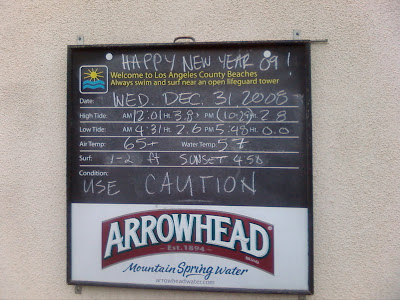 HAPPY NEW YEAR 09!
Welcome to Los Angeles County Beaches
Always swim and surf near an open lifeguard tower
Date: WED. DEC. 31 2008
High Tide: AM 12:01 Ht. 3.8 PM 10:29 Ht. 2.8
Low Tide: AM 4:31 Ht. 2.6 PM 5:48 Ht. 0.0
Air Temp: 65+ Water Temp: 57
Surf: 1-2 ft SUNSET 4:50
Condition:
USE CAUTION
ARROWHEAD
EST. 1894
BRAND
Mountain Spring Water
arrowheadwater.com